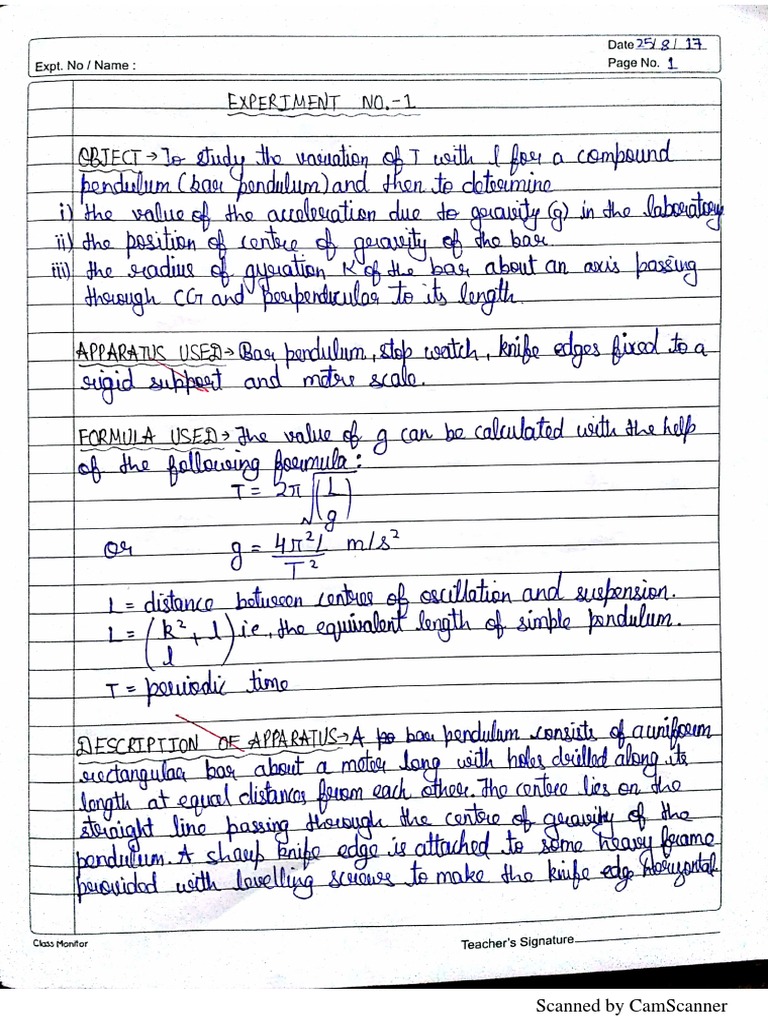 Date 25/8/17
Expt. No / Name :
Page No. 1
EXPERIMENT NO.-1
OBJECT → To study the variation of T with l for a compound
pendulum (bar pendulum) and then to determine
i) the value of the acceleration due to gravity (g) in the laboratory
ii) the position of centre of gravity of the bar
iii) the radius of gyration K of the bar about an axis passing
through CG and perpendicular to its length.
APPARATUS USED → Bar pendulum, stop watch, knife edges fixed to a
rigid support and metre scale.
FORMULA USED → The value of g can be calculated with the help
of the following formula:
T = 2π √(L/g)
or g = 4π²L/T² m/s²
L = distance between centres of oscillation and suspension.
L = (k²/l + l) i.e, the equivalent length of simple pendulum.
T = periodic time
DESCRIPTION OF APPARATUS → A bar pendulum consists of a uniform
rectangular bar about a meter long with holes drilled along its
length at equal distances from each other. The centre lies on the
straight line passing through the centre of gravity of the
pendulum. A sharp knife edge is attached to some heavy frame
provided with levelling screws to make the knife edge horizontal.
Class Monitor
Teacher's Signature
Scanned by CamScanner